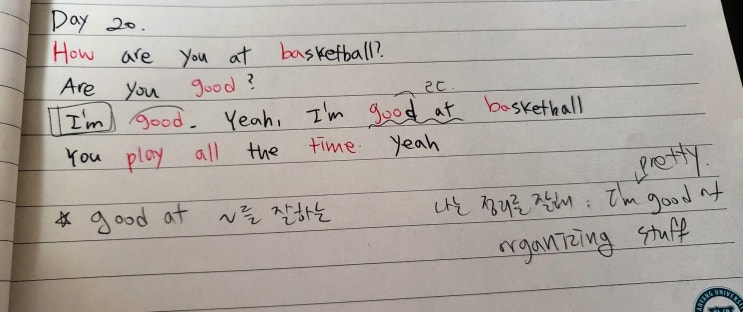 Day 20.
How are you at basketball?
Are you good?
ㄹㄷ.
I'm good. Yeah, I'm good at basketball
You play all the time. Yeah
pretty.
☆ good at ~를 잘하는
나는 정리를 잘해 : I'm good at
organizing stuff
UNIVER